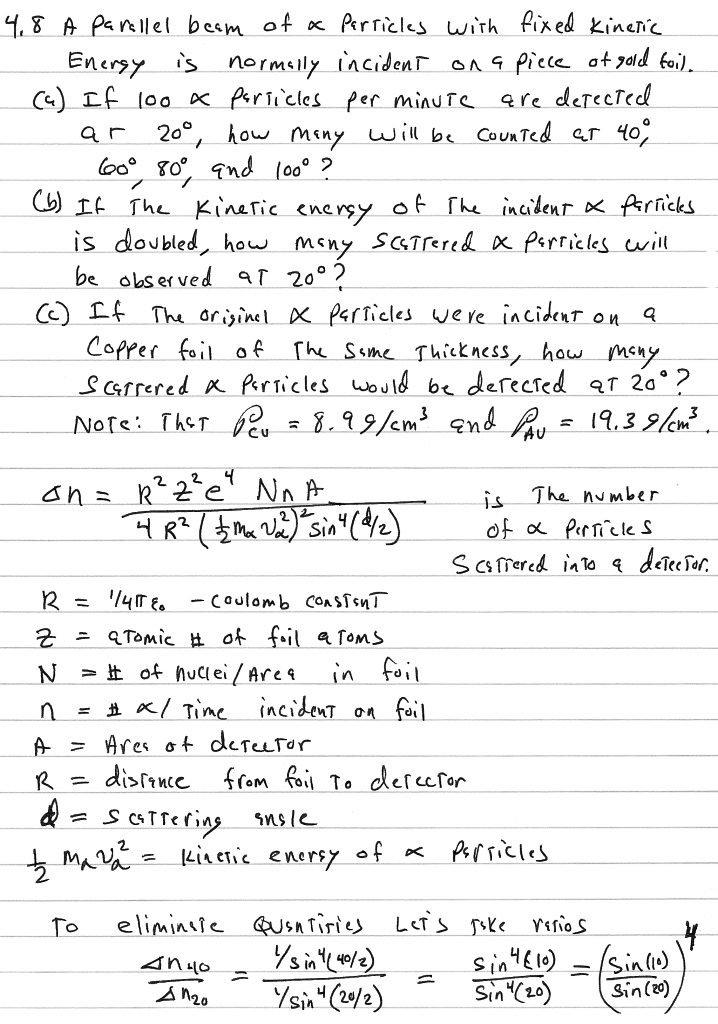 4.8 A Parallel beam of α Particles with fixed Kinetic
Energy is normally incident on a piece of gold foil.
(a) If 100 α Particles per minute are detected
at 20°, how many will be counted at 40°,
60°, 80°, and 100°?
(b) If The Kinetic energy of The incident α Particles
is doubled, how many scattered α Particles will
be observed at 20°?
(c) If The original α Particles were incident on a
Copper foil of The Same Thickness, how many
Scattered α Particles would be detected at 20°?
Note: That ρCU = 8.9 g/cm³ and ρAU = 19.3 g/cm³.
Δn = k² Z² e⁴ N n A / 4 R² (½ mα vα²)² sin⁴(ɸ/2) is The number
of α Particles
Scattered into a detector.
k = 1/4πε₀ - Coulomb constant
Z = atomic # of foil atoms
N = # of nuclei/Area in foil
n = # α/Time incident on foil
A = Area of detector
R = distance from foil To detector
ɸ = scattering angle
½ mα vα² = Kinetic energy of α Particles
To eliminate Quantities Let's Take ratios
Δn40 / Δn20 = 1/sin⁴(40/2) / 1/sin⁴(20/2) = sin⁴(10) / sin⁴(20) = (sin(10) / sin(20))⁴